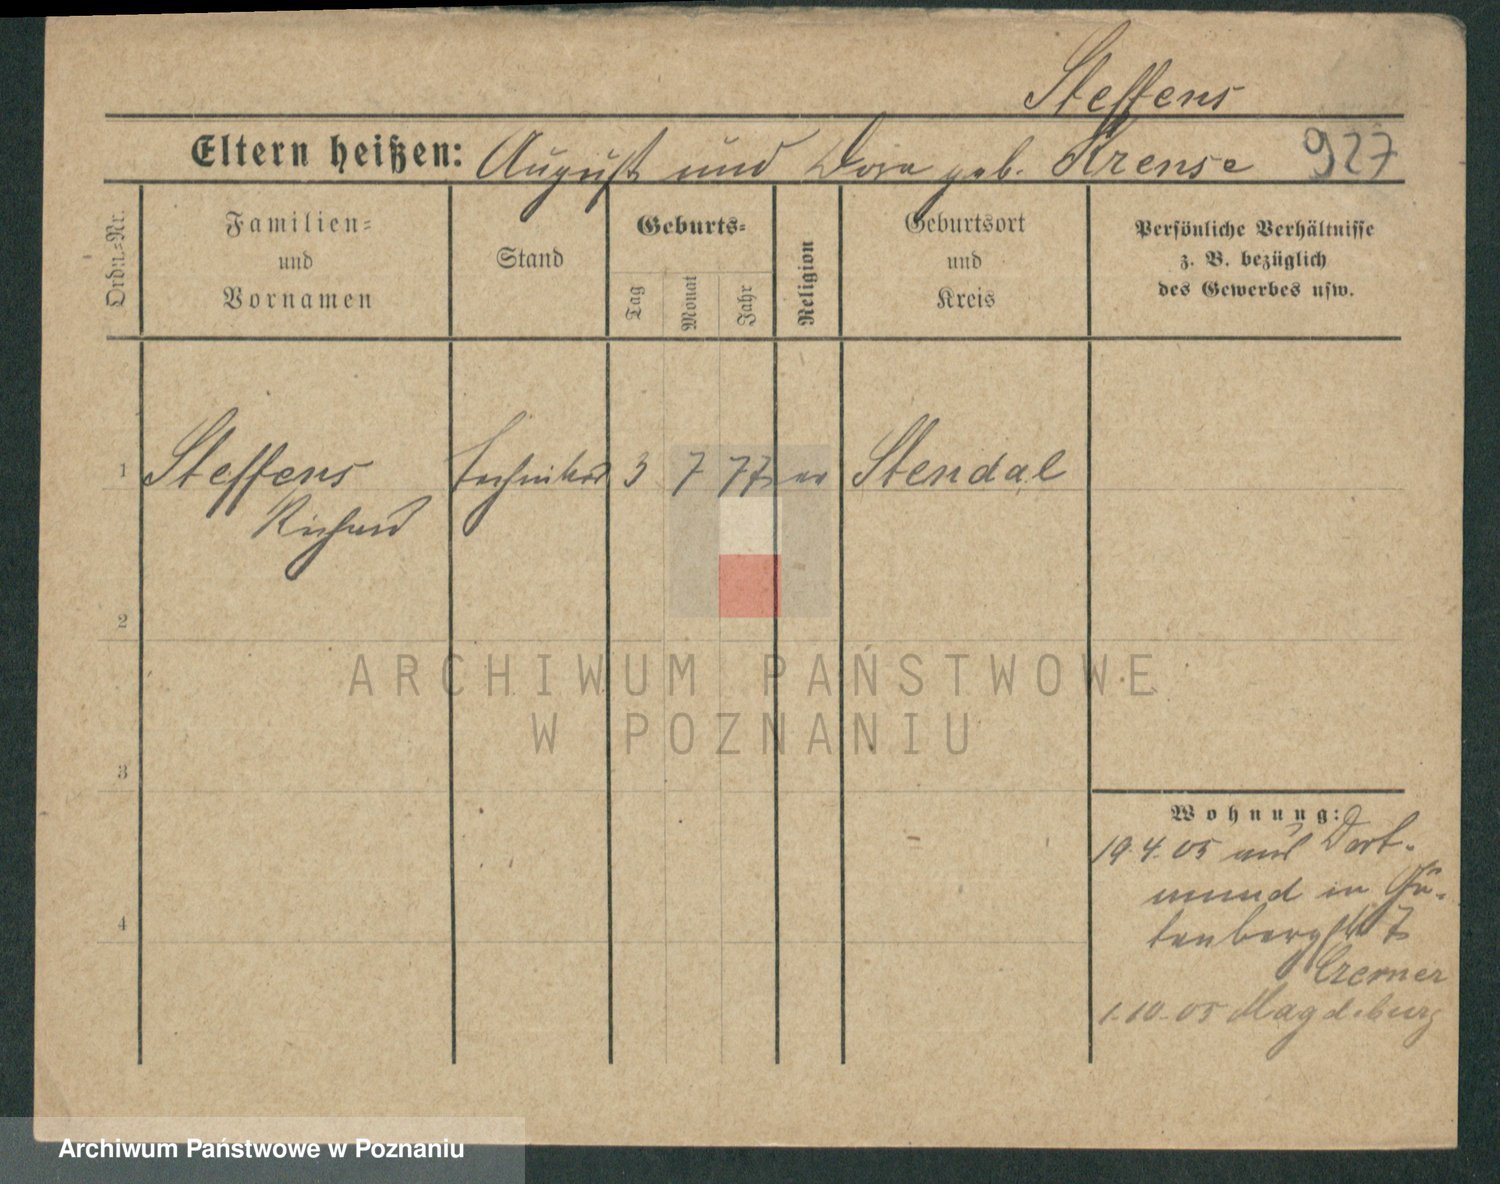 Steffens
Eltern heißen: August und Dora geb. Krense 927
Ordn.-Nr.
Familien-
und
Vornamen
Stand
Geburts-
Tag
Monat
Jahr
Religion
Geburtsort
und
Kreis
Persönliche Verhältnisse
z. B. bezüglich
des Gewerbes usw.
1 Steffens Techniker 3 7 77 ev Stendal
Richard
2
ARCHIWUM PAŃSTWOWE
W POZNANIU
3
Wohnung:
19.4.05 aus Dort-
mund in Gu-
tenbergstr 7
Cremer
4
1.10.05 Magdeburg
Archiwum Państwowe w Poznaniu